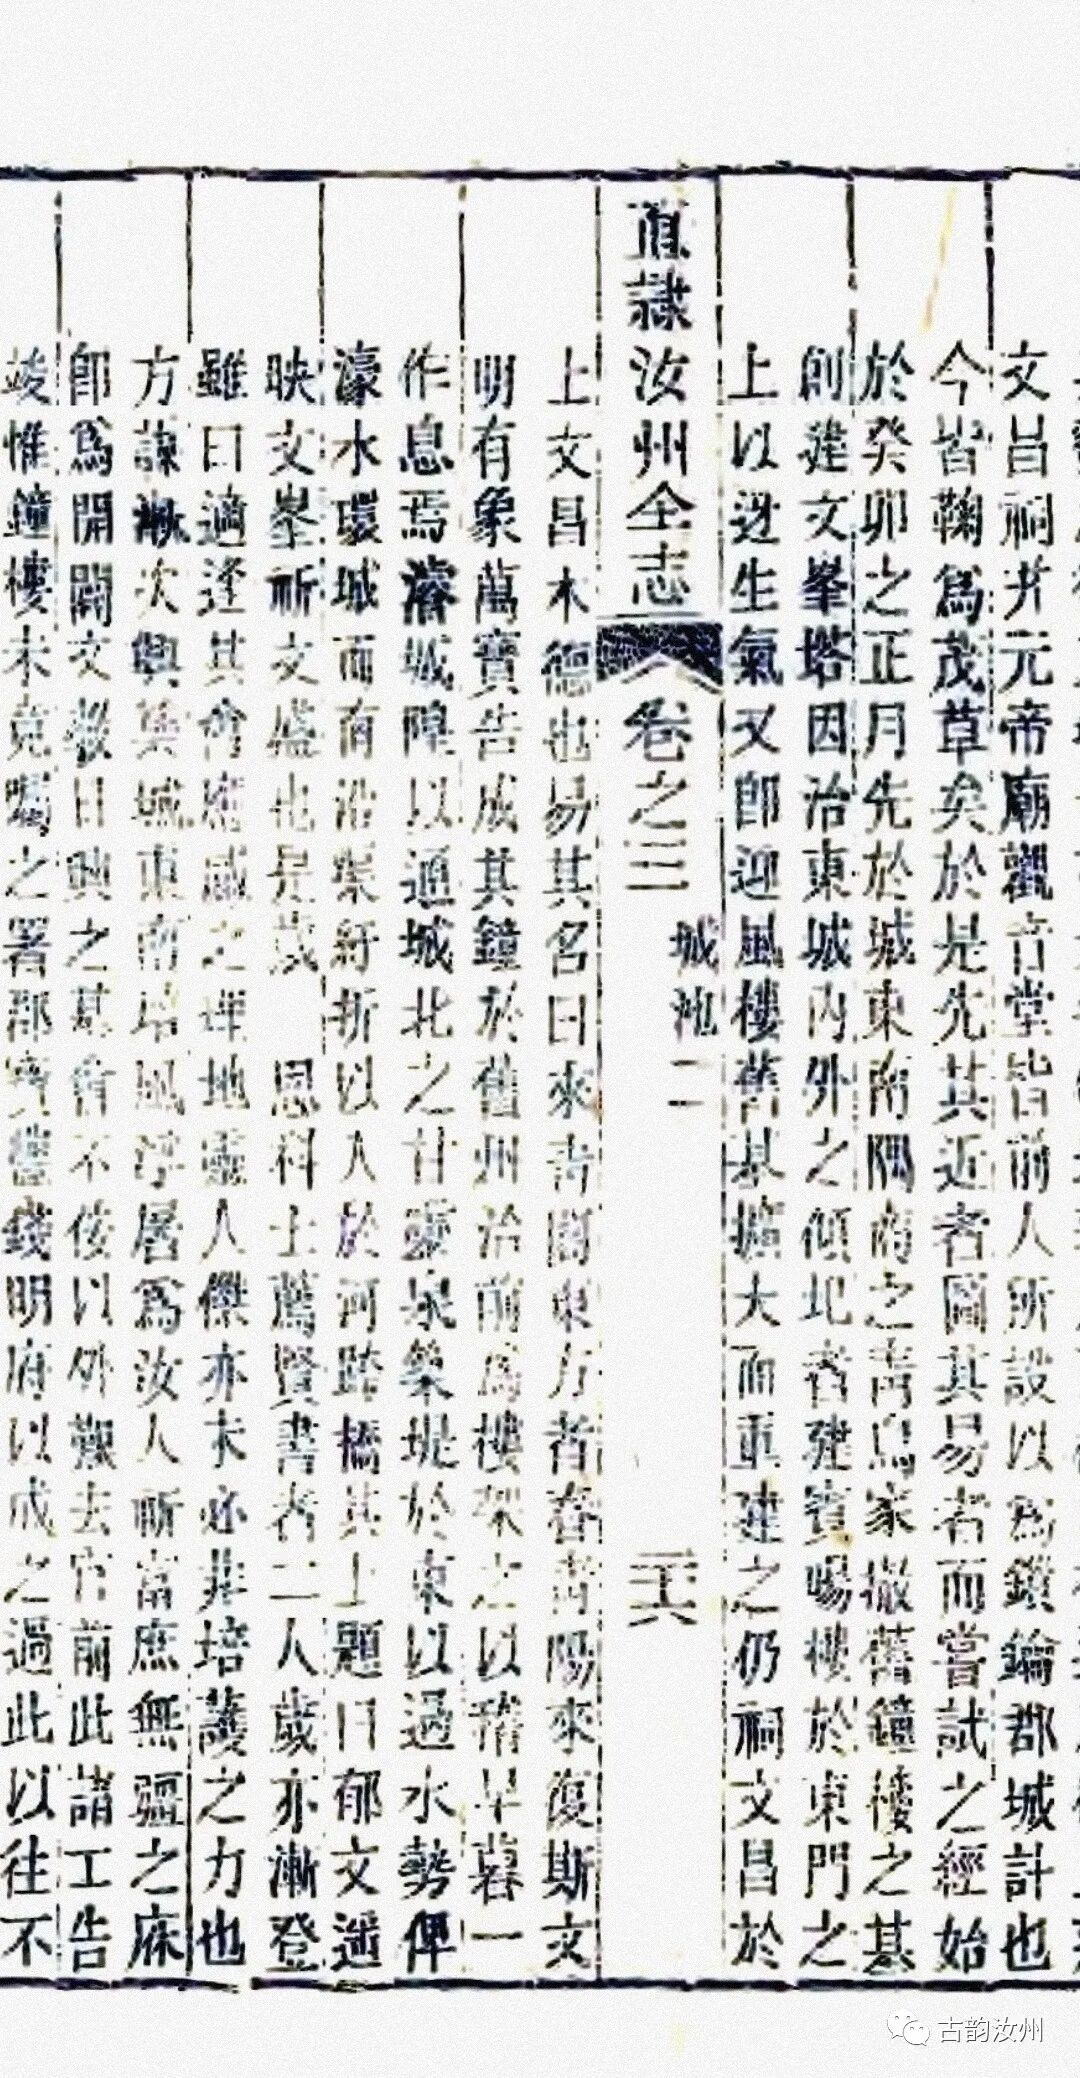 文昌祠并元帝廟觀音堂皆前人所設以為鎖鑰郡城計也
今皆鞠為茂草矣於是先其近者圖其易者而嘗試之經始
於癸卯之正月先於城東南隅商之青烏家撤舊鐘樓之基
創建文峯塔因治東城內外之傾圮者建賓暘樓於東門之
上以迓生氣又卽迎風樓舊基擴大而重建之仍祠文昌於
直隸汝州全志 卷之三 城池二 二十六
上文昌木德也易其名曰來青閣東方者春青陽來復斯文
明有象萬寶告成其鐘於舊州治前為樓架之以稽早暮一
作息焉濬城隍以通城北之甘靈泉築堤於東以遏水勢俾
濠水環城而有沿渠紆折以入於河跨橋其上題曰郁文遥
映文峯祈文盛也是歲 恩科士薦賢書者二人歲亦漸登
雖曰適逢其會應感之理地靈人傑亦未必非培護之力也
方次興城東南培風浮屠為汝人祈富庶無疆之庥
卽為開闢文教日興之基不佞以外艱去官前此諸工告
竣惟鐘樓未克囑之署郡錢明府以成之過此以往不
古韵汝州